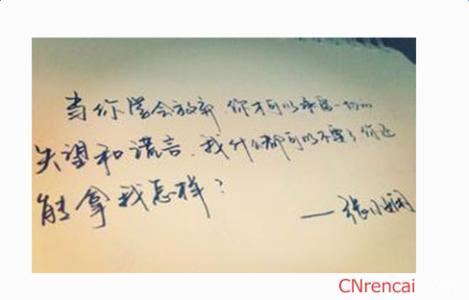 当你学会放弃 你才可以承受一切……
失望和谎言。我什么都可以不要了你还
能拿我怎样？
——张小娴
CNrencai